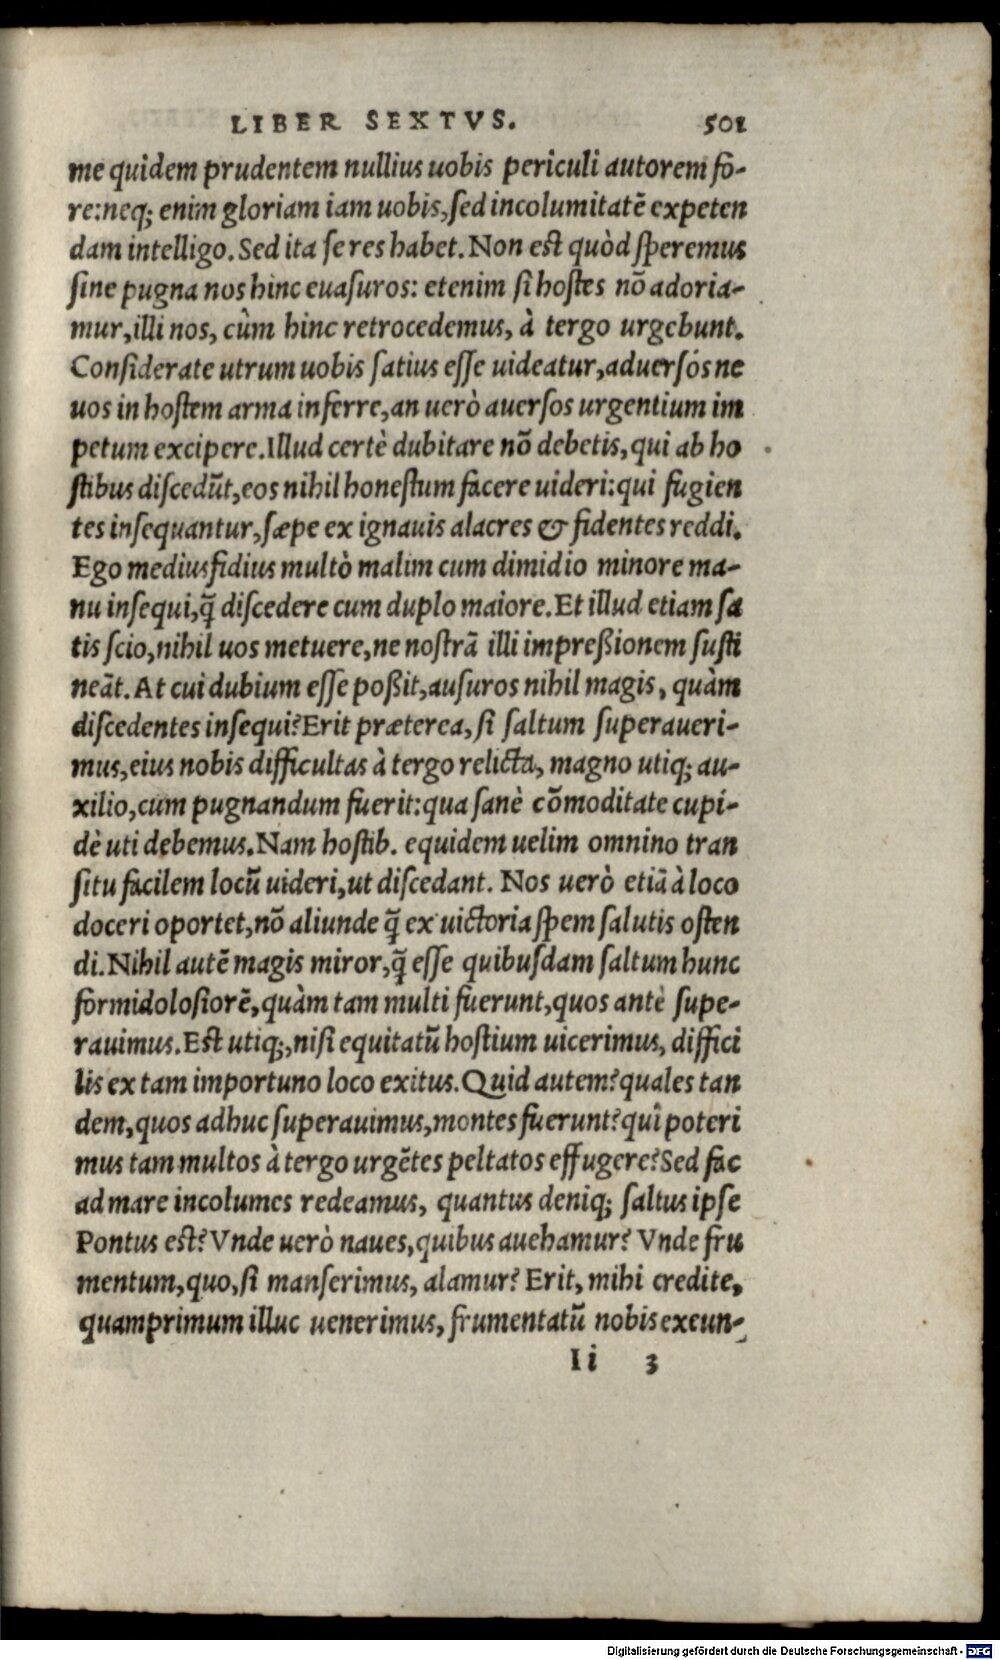 LIBER SEXTVS. 501
me quidem prudentem nullius uobis periculi autorem fo-
re:neq; enim gloriam iam uobis,sed incolumitatē expeten
dam intelligo. Sed ita se res habet. Non est quòd speremus
sine pugna nos hinc euasuros: etenim si hostes nō adoria-
mur,illi nos, cùm hinc retrocedemus, à tergo urgebunt.
Considerate utrum uobis satius esse uideatur,aduersós ne
uos in hostem arma inferre,an uerò auersos urgentium im
petum excipere.Illud certè dubitare nō debetis,qui ab ho
stibus discedūt,eos nihil honestum facere uideri:qui fugien
tes insequantur,sæpe ex ignauis alacres & fidentes reddi.
Ego mediusfidius multò malim cum dimidio minore ma-
nu insequi,q̃ discedere cum duplo maiore.Et illud etiam sa
tis scio,nihil uos metuere,ne nostrā illi impreßionem susti
neāt. At cui dubium esse poßit,ausuros nihil magis, quàm
discedentes insequi?Erit præterea,si saltum superaueri-
mus,eius nobis difficultas à tergo relicta, magno utiq; au-
xilio,cum pugnandum fuerit:qua sanè cōmoditate cupi-
dè uti debemus.Nam hostib. equidem uelim omnino tran
situ facilem locū uideri,ut discedant. Nos uerò etiā à loco
doceri oportet,nō aliunde q̃ ex uictoria spem salutis osten
di.Nihil autē magis miror,q̃ esse quibusdam saltum hunc
formidolosiorē,quàm tam multi fuerunt,quos antè supe-
rauimus.Est utiq;,nisi equitatū hostium uicerimus, diffici
lis ex tam importuno loco exitus.Quid autem?quales tan
dem,quos adhuc superauimus,montes fuerunt?quî poteri
mus tam multos à tergo urgētes peltatos effugere?Sed fac
ad mare incolumes redeamus, quantus deniq; saltus ipse
Pontus est? Vnde uerò naues,quibus auehamur? Vnde fru
mentum,quo,si manserimus, alamur? Erit, mihi credite,
quamprimum illuc uenerimus, frumentatū nobis exeun-
Ii 3
Digitalisierung gefördert durch die Deutsche Forschungsgemeinschaft - DFG